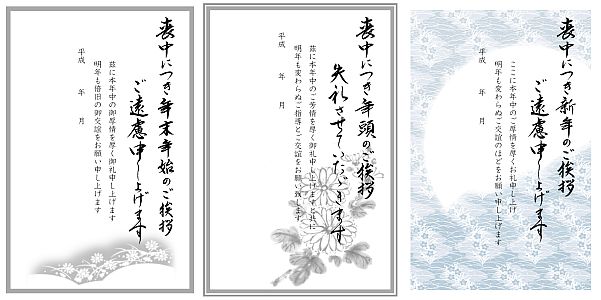 喪中につき年末年始のご挨拶
ご遠慮申し上げます
茲に本年中の御厚情を厚く御礼申し上げます
明年も倍旧の御交誼をお願い申し上げます
平成　年　月
喪中につき年頭のご挨拶
失礼させていただきます
茲に本年中のご芳情を厚く御礼申し上げますと共に
明年も変わらぬご指導とご交誼をお願い致します
平成　年　月
喪中につき新年のご挨拶
ご遠慮申し上げます
ここに本年中のご厚情を厚くお礼申し上げ
明年も変わらぬご交誼のほどをお願い申し上げます
平成　年　月